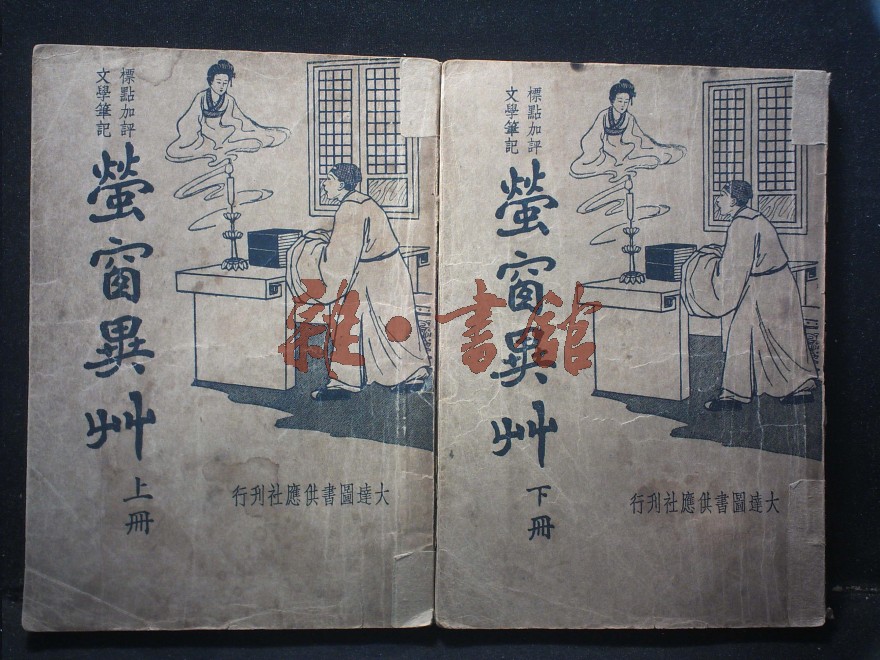 標點加評
文學筆記
螢窗異艸
上冊
大達圖書供應社刊行
標點加評
文學筆記
螢窗異艸
下冊
大達圖書供應社刊行
雜·書館